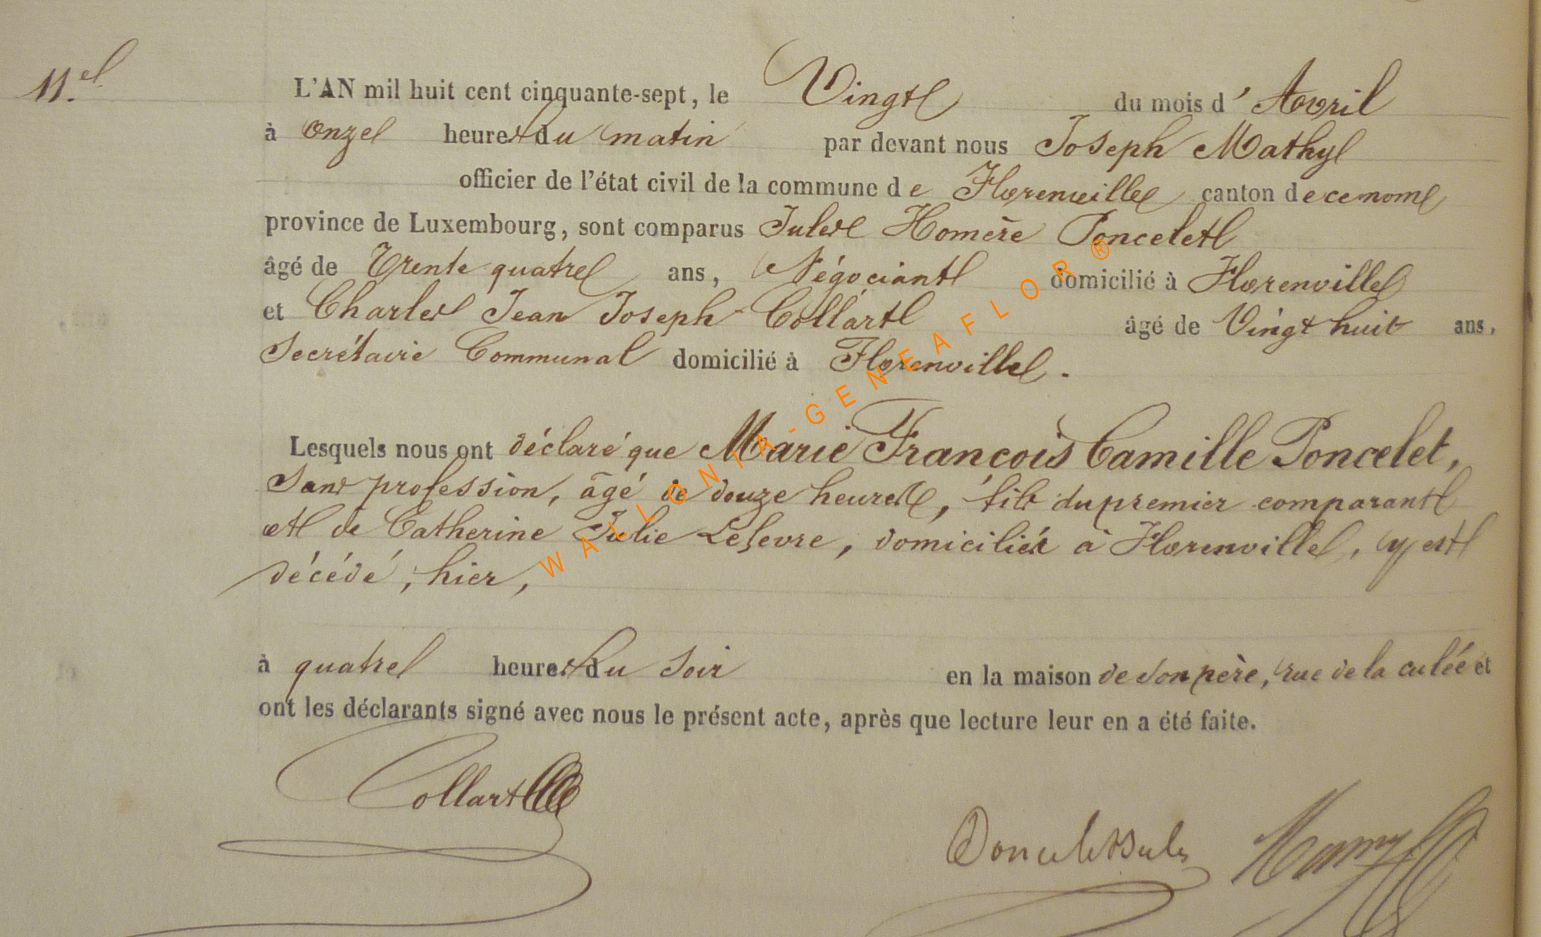 11.e
L'AN mil huit cent cinquante-sept, le Vingt du mois d' Avril
à onze heures du matin par devant nous Joseph Mathy
officier de l'état civil de la commune de Florenville canton de ce nom
province de Luxembourg, sont comparus Jules Homère Poncelet
âgé de Trente quatre ans, Négociant domicilié à Florenville
et Charles Jean Joseph Collart âgé de Vingt huit ans,
Secrétaire Communal domicilié à Florenville.
Lesquels nous ont déclaré que Marie François Camille Poncelet,
Sans profession, âgé de douze heures, fils du premier comparant
et de Catherine Julie Lefevre, domiciliés à Florenville, y est
décédé, hier,
à quatre heures du soir en la maison de son père, rue de la culée et
ont les déclarants signé avec nous le présent acte, après que lecture leur en a été faite.
Collart
Poncelet Jules
WALLONIA-GENEAFLOR®